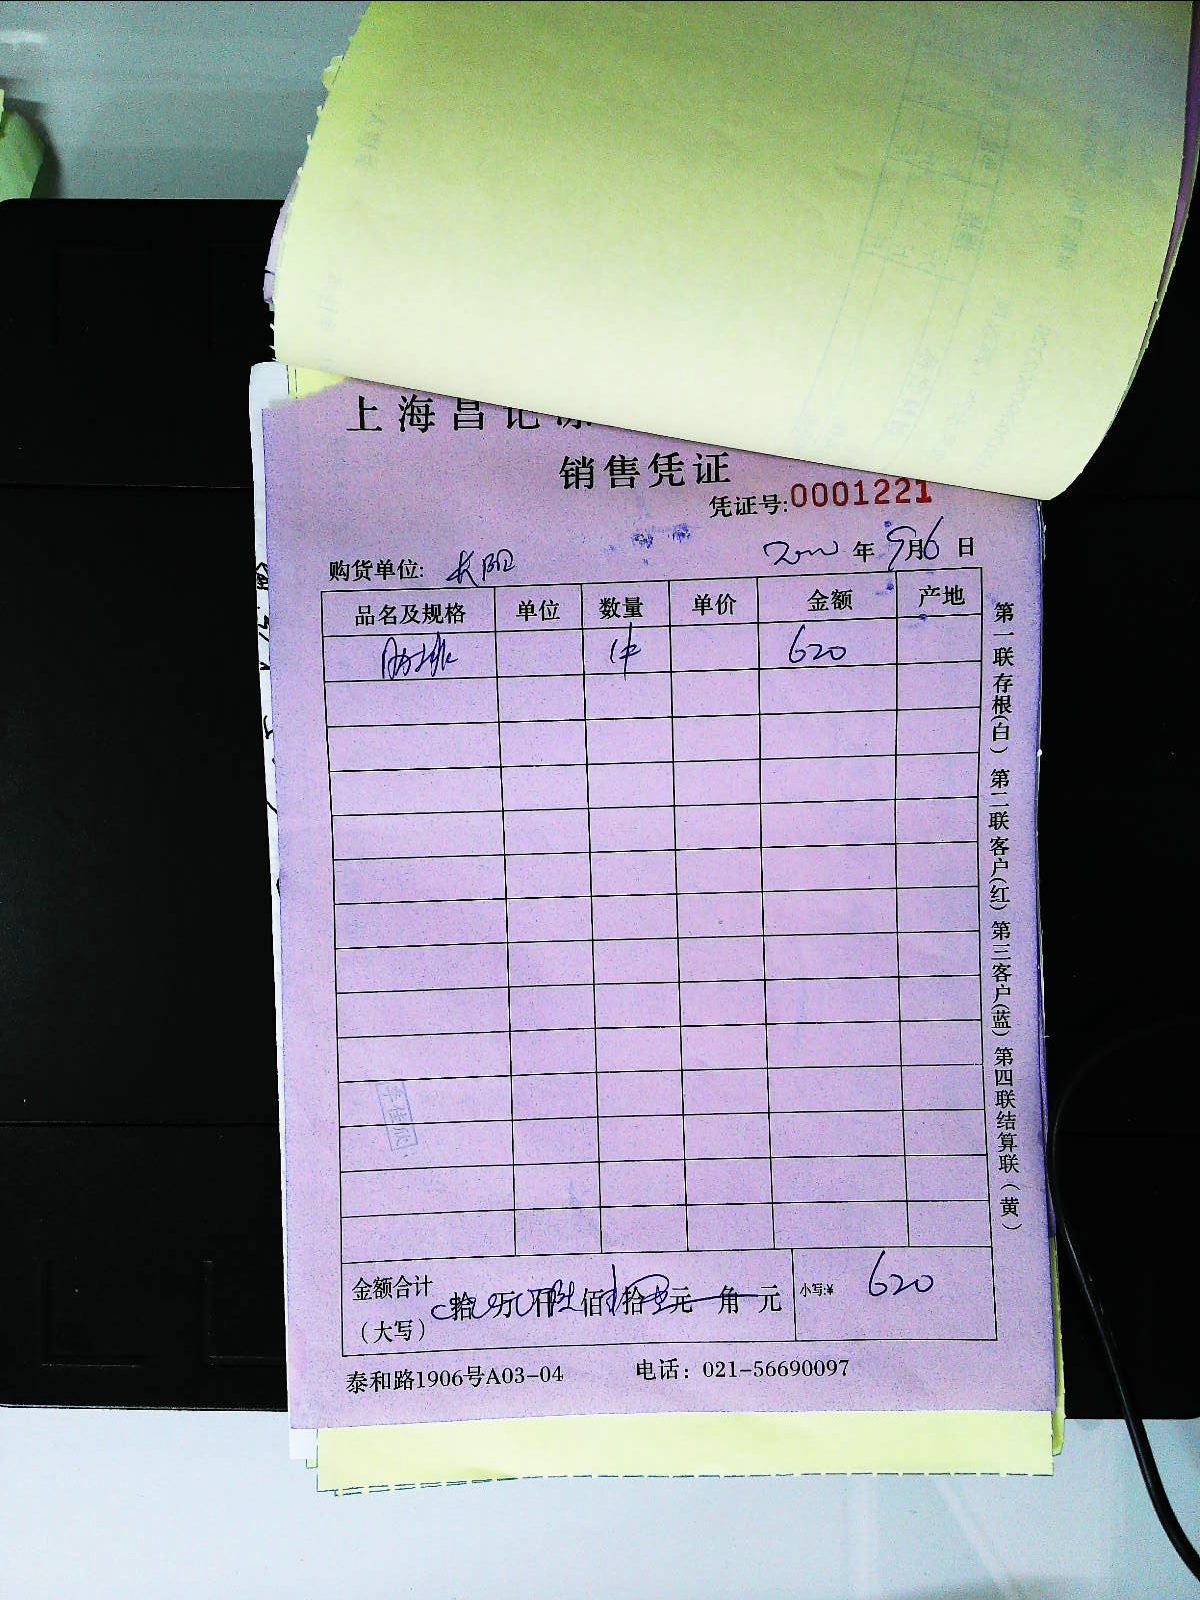 上海昌记
销售凭证
凭证号:0001221
购货单位: 长阳 年9月6日
品名及规格 单位 数量 单价 金额 产地
肋排 1件 620
金额合计 拾 万 仟 佰 拾 元 角 元 小写:¥ 620
(大写)
泰和路1906号A03-04 电话: 021-56690097
第一联存根(白) 第二联客户(红) 第三客户(蓝) 第四联结算联(黄)